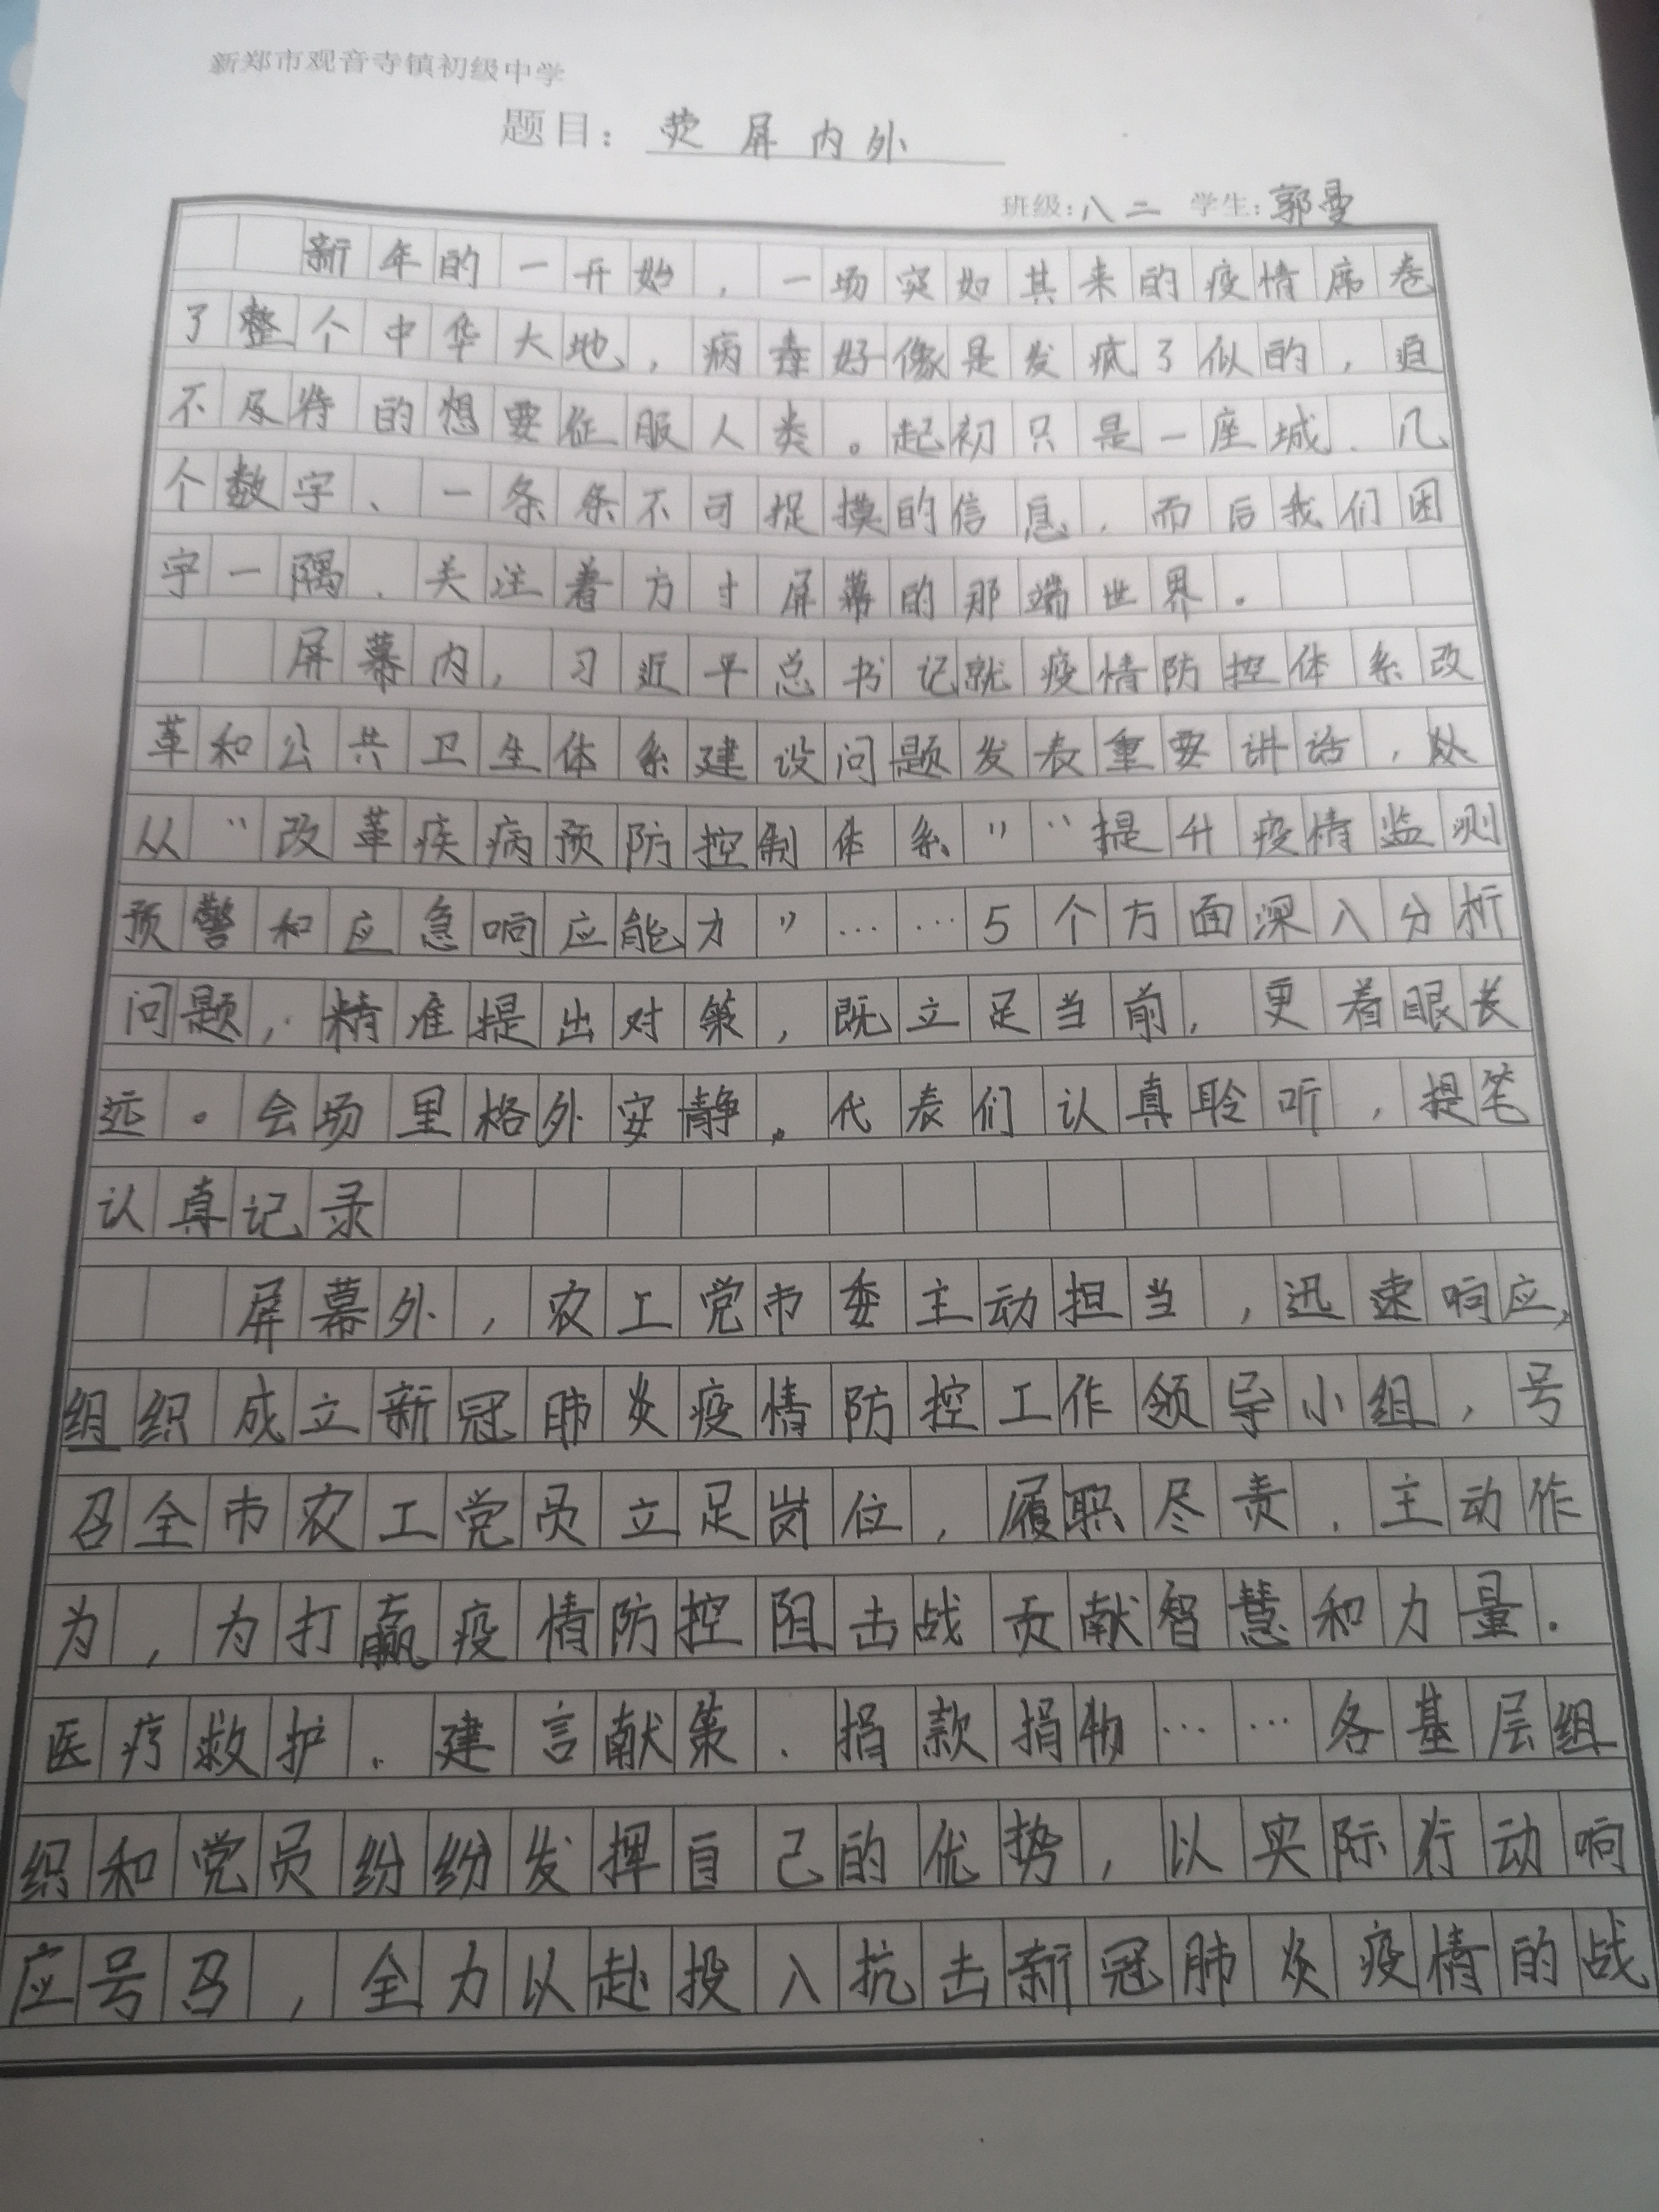 新郑市观音寺镇初级中学
题目：荧屏内外
班级：八二 学生：郭曼
新年的一开始，一场突如其来的疫情席卷
了整个中华大地，病毒好像是发疯了似的，迫
不及待的想要征服人类。起初只是一座城、几
个数字、一条条不可捉摸的信息，而后我们困
守一隅、关注着方寸屏幕的那端世界。
屏幕内，习近平总书记就疫情防控体系改
革和公共卫生体系建设问题发表重要讲话，
从“改革疾病预防控制体系”“提升疫情监测
预警和应急响应能力”……5个方面深入分析
问题，精准提出对策，既立足当前，更着眼长
远。会场里格外安静。代表们认真聆听，提笔
认真记录
屏幕外，农工党市委主动担当，迅速响应，
组织成立新冠肺炎疫情防控工作领导小组，号
召全市农工党员立足岗位，履职尽责，主动作
为，为打赢疫情防控阻击战贡献智慧和力量.
医疗救护、建言献策、捐款捐物……各基层组
织和党员纷纷发挥自己的优势，以实际行动响
应号召，全力以赴投入抗击新冠肺炎疫情的战